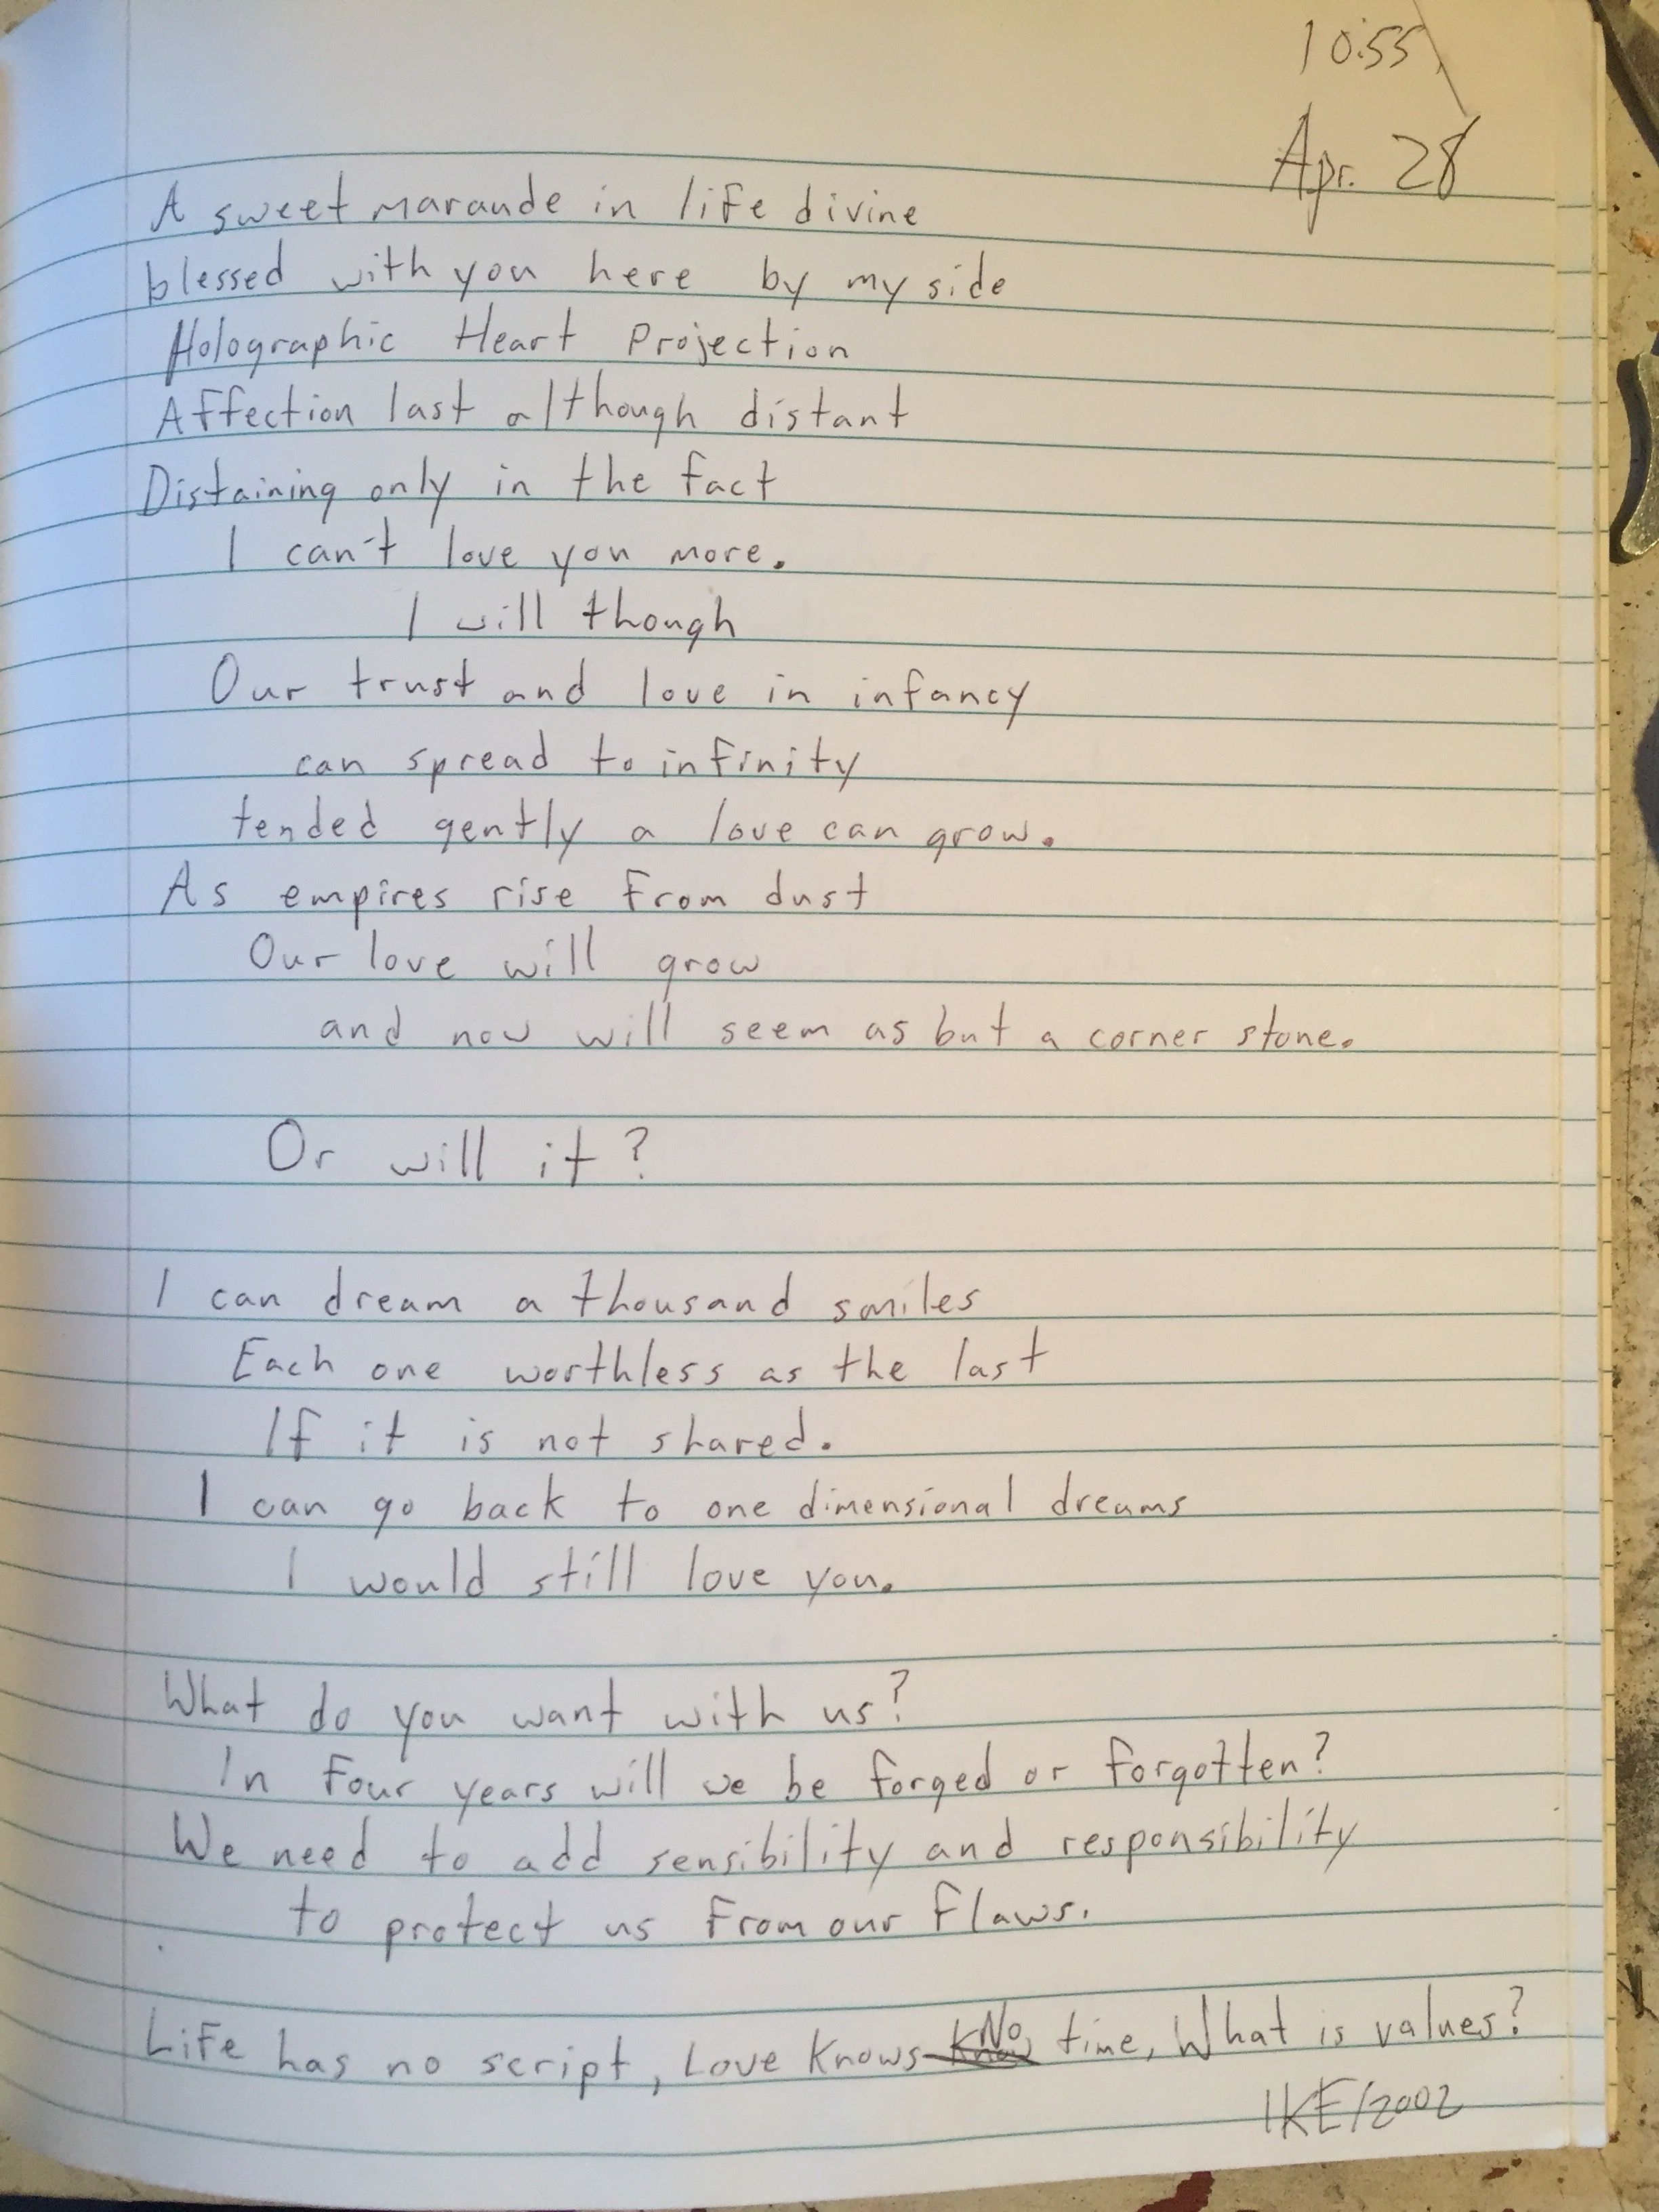 10:55
Apr. 28
A sweet maraude in life divine
blessed with you here by my side
Holographic Heart Projection
Affection last although distant
Distaining only in the fact
I can't love you more.
I will though
Our trust and love in infancy
can spread to infinity
tended gently a love can grow.
As empires rise from dust
Our love will grow
and now will seem as but a corner stone.
Or will it?
I can dream a thousand smiles
Each one worthless as the last
If it is not shared.
I can go back to one dimensional dreams
I would still love you.
What do you want with us?
In four years will we be forged or forgotten?
We need to add sensibility and responsibility
to protect us from our flaws.
Life has no script, Love Knows No time, What is values?
IKE/2002